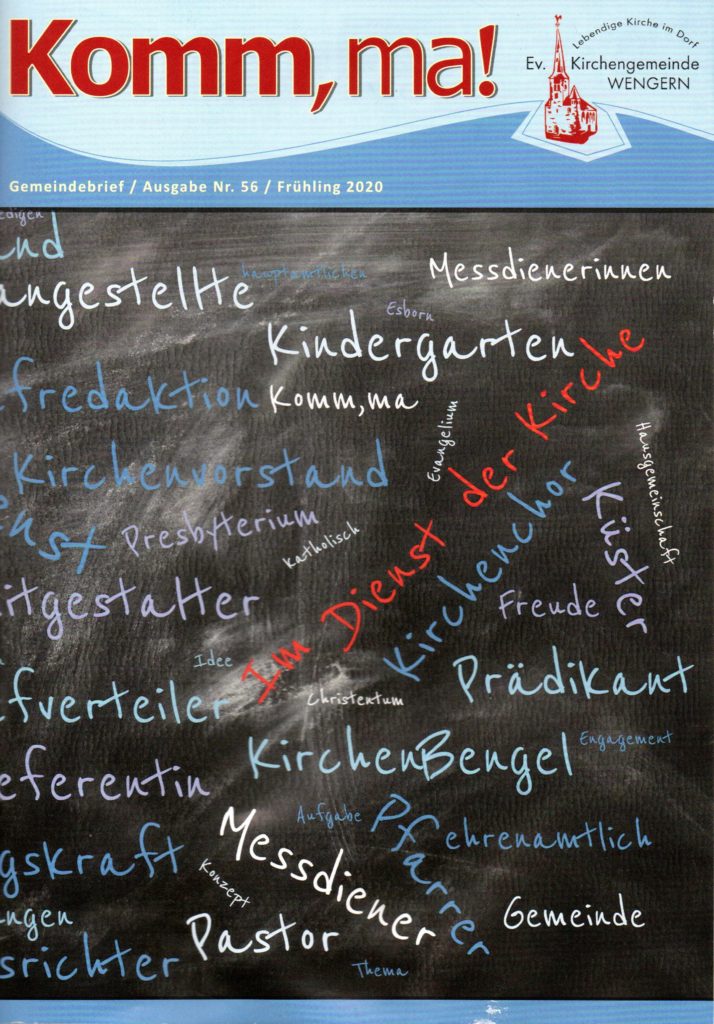 Komm, ma!
Lebendige Kirche im Dorf
Ev. Kirchengemeinde
WENGERN
Gemeindebrief / Ausgabe Nr. 56 / Frühling 2020
edigen
and
hauptamtlichen
Messdienerinnen
angestellte
Esborn
Kindergarten
fredaktion
Komm,ma
Evangelium
Im Dienst der Kirche
Hausgemeinschaft
Kirchenvorstand
enst
Presbyterium
katholisch
Kirchenchor
Küster
itgestalter
Freude
Idee
Prädikant
fverteiler
Christentum
KirchenBengel
Engagement
eferentin
Aufgabe
Pfarrer
ehrenamtlich
Messdiener
gskraft
Konzept
ngen
Pastor
Gemeinde
srichter
Thema